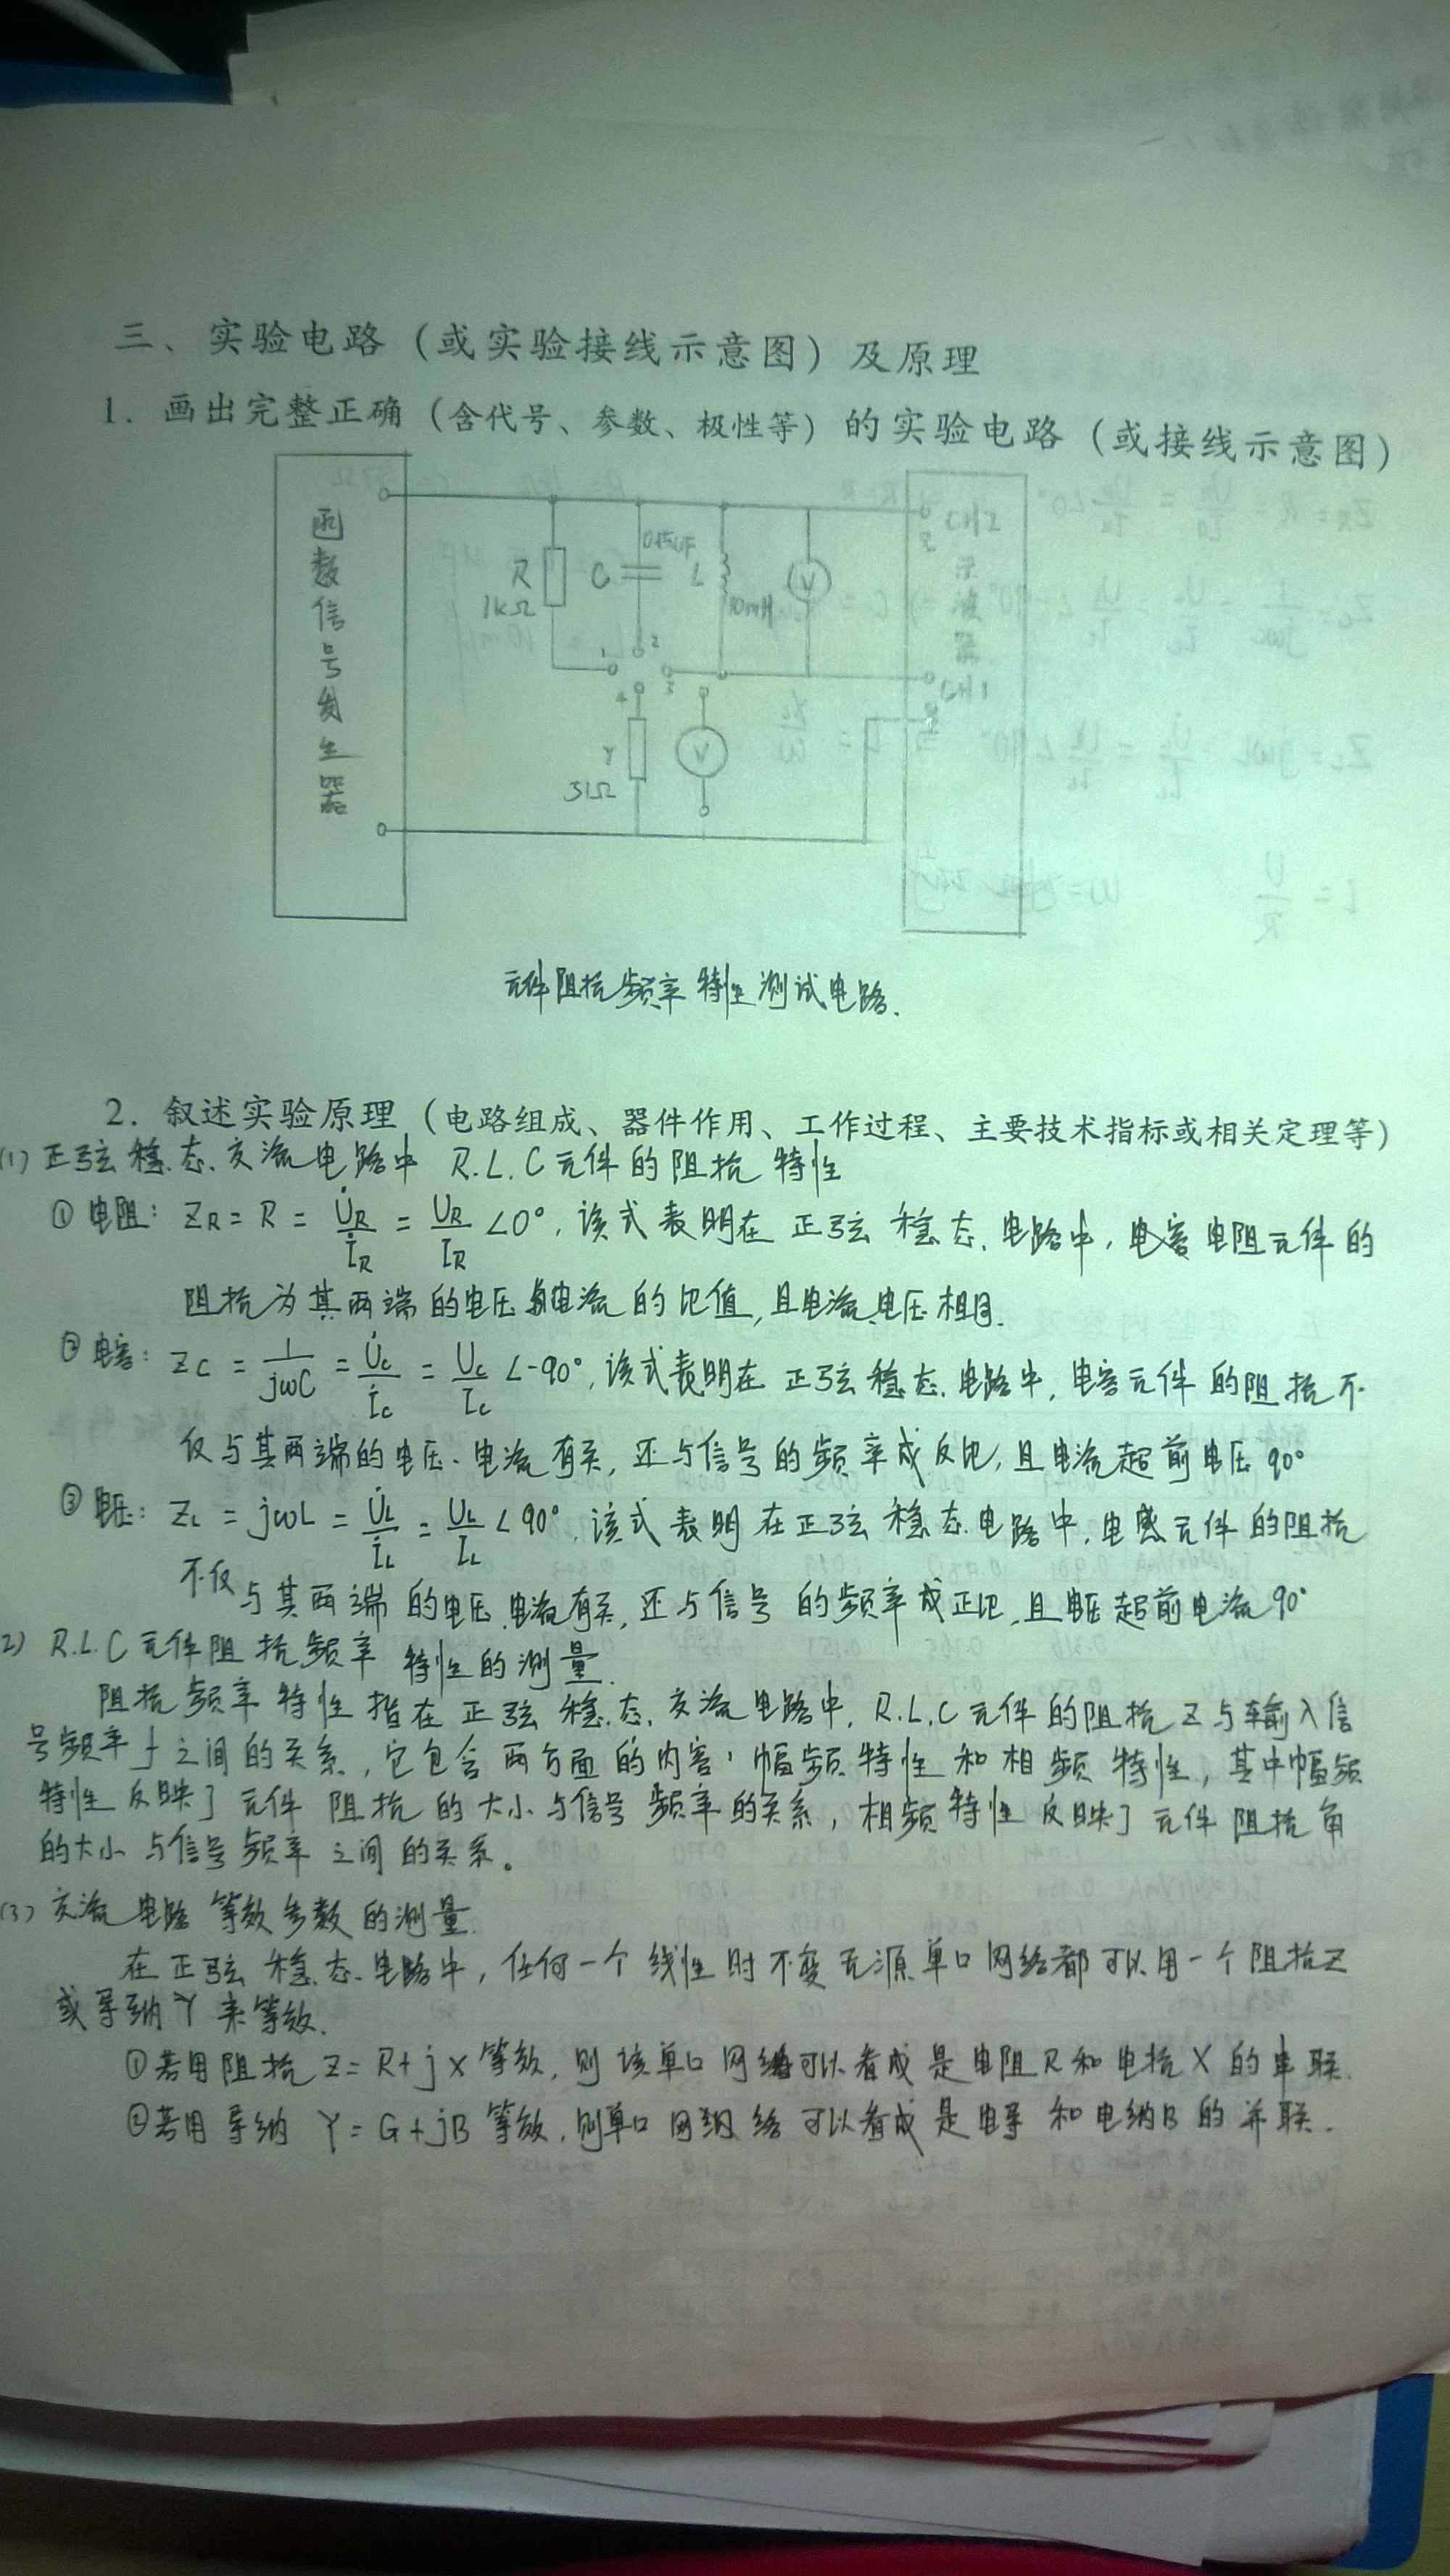 三、实验电路（或实验接线示意图）及原理
1. 画出完整正确（含代号、参数、极性等）的实验电路（或接线示意图）
函数信号发生器
R
1kΩ
C
L
10mH
V
1
2
3
4
r
51Ω
V
CH2
示波器
CH1
元件阻抗频率特性测试电路.
2. 叙述实验原理（电路组成、器件作用、工作过程、主要技术指标或相关定理等）
(1) 正弦稳态交流电路中 R.L.C元件的阻抗特性
① 电阻: ZR = R = U̇R/İR = UR/IR ∠0°, 该式表明在正弦稳态电路中, 电阻元件的
阻抗为其两端的电压与电流的比值, 且电流、电压相同.
② 电容: ZC = 1/jωC = U̇C/İC = UC/IC ∠-90°, 该式表明在正弦稳态电路中, 电容元件的阻抗不
仅与其两端的电压、电流有关, 还与信号的频率成反比, 且电流超前电压90°
③ 电压: ZL = jωL = U̇L/İL = UL/IL ∠90°, 该式表明在正弦稳态电路中, 电感元件的阻抗
不仅与其两端的电压、电流有关, 还与信号的频率成正比, 且电压超前电流90°
2) R.L.C元件阻抗频率特性的测量.
阻抗频率特性指在正弦稳态交流电路中, R.L.C元件的阻抗Z与输入信
号频率f之间的关系, 它包含两方面的内容, 幅频特性和相频特性, 其中幅频
特性反映了元件阻抗的大小与信号频率的关系, 相频特性反映了元件阻抗角
的大小与信号频率之间的关系。
(3) 交流电路等效参数的测量.
在正弦稳态电路中, 任何一个线性时不变无源单口网络都可以用一个阻抗Z
或导纳Y来等效.
①若用阻抗 Z = R+jX等效, 则该单口网络可以看成是电阻R和电抗X的串联.
②若用导纳 Y = G+jB等效, 则单口网络可以看成是电导和电纳B的并联.